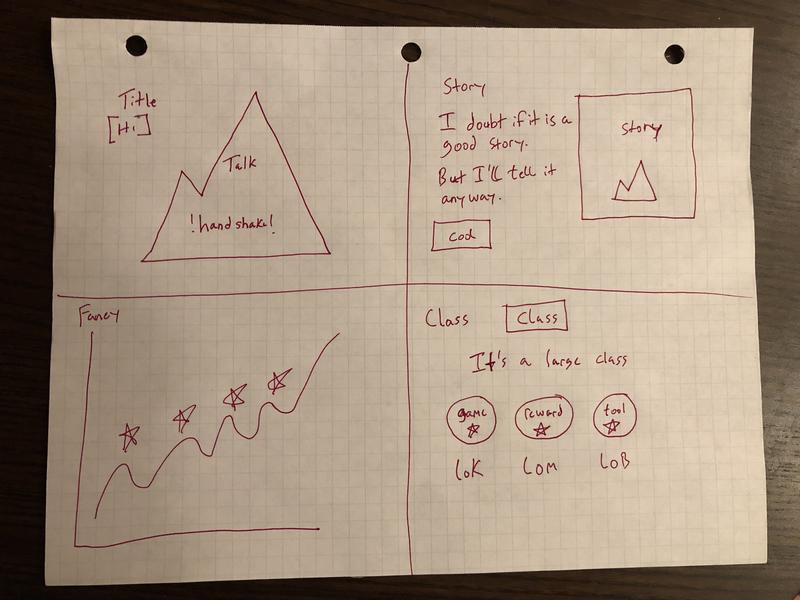 Title
[Hi]
Talk
!handshake!
Story
I doubt if it is a
good story.
But I'll tell it
anyway.
Cod
Story
Fancy
Class
Class
It's a large class
game
reward
tool
LOK
LOM
LOB